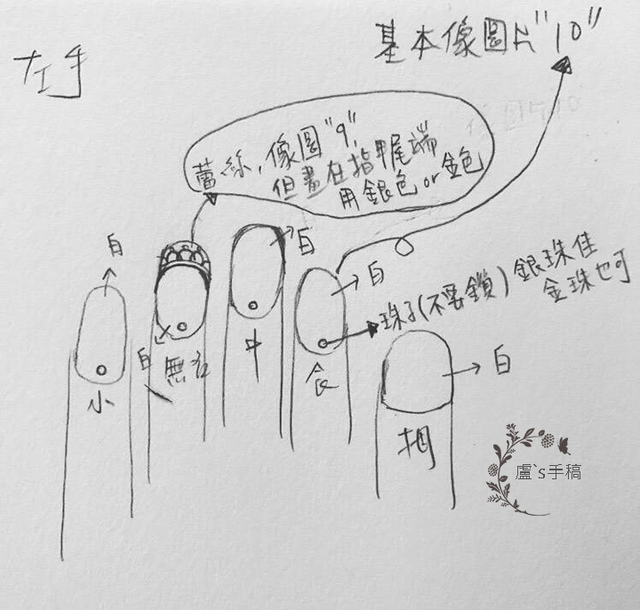 基本像圖片"10"
左手
蕾絲,像圖"9",
但畫在指甲尾端
用銀色or金色
白
白
白
珠子(不要鎖)銀珠佳
金珠也可
白
白
小
無名
中
食
拇
盧`s手稿